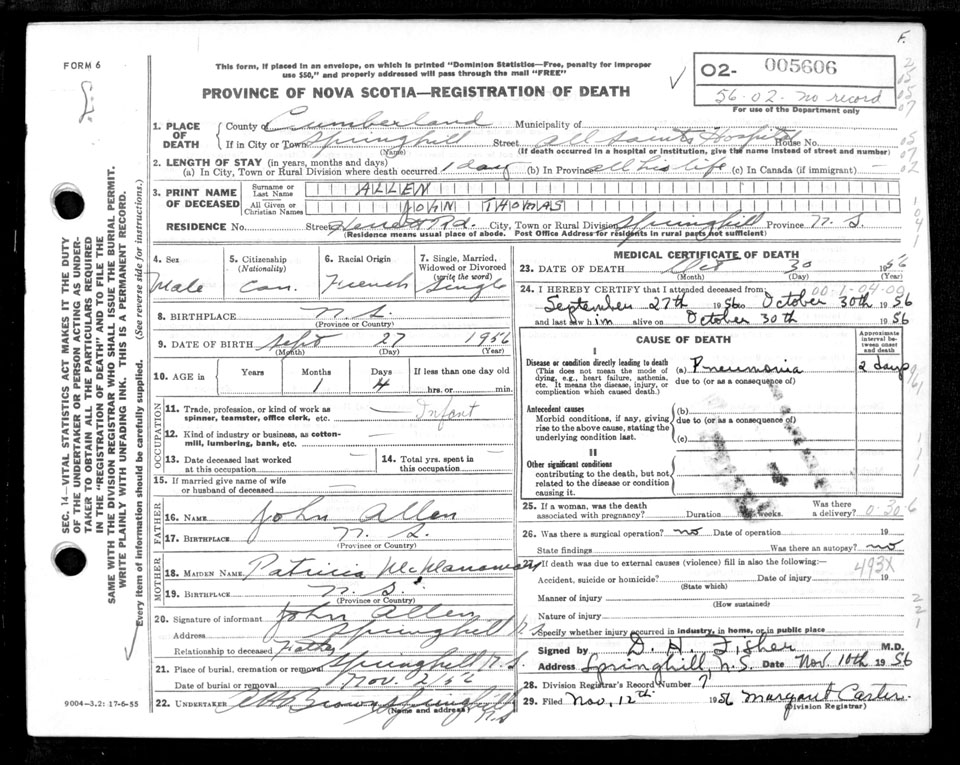 F.
FORM 6
This form, if placed in an envelope, on which is printed "Dominion Statistics—Free, penalty for improper
use $50," and properly addressed will pass through the mail "FREE"
PROVINCE OF NOVA SCOTIA—REGISTRATION OF DEATH
02- 005606
56-02- no record
For use of the Department only
1. PLACE OF DEATH
County of Cumberland Municipality of
If in City or Town Springhill Street All Saints Hospital House No.
(Name) (If death occurred in a hospital or institution, give the name instead of street and number)
2. LENGTH OF STAY (in years, months and days)
(a) In City, Town or Rural Division where death occurred 1 day (b) In Province all his life (c) In Canada (if immigrant)
3. PRINT NAME OF DECEASED
Surname or Last Name ALLEN
All Given or Christian Names JOHN THOMAS
RESIDENCE No. Street Rd. City, Town or Rural Division Springhill Province N.S.
(Residence means usual place of abode. Post Office Address for residents in rural parts not sufficient)
4. Sex Male
5. Citizenship (Nationality) Can.
6. Racial Origin French
7. Single, Married, Widowed or Divorced (write the word) Single
8. BIRTHPLACE N.S.
(Province or Country)
9. DATE OF BIRTH Sept 27 1956
(Month) (Day) (Year)
10. AGE in Years Months Days If less than one day old
1 4 hrs. or min.
OCCUPATION
11. Trade, profession, or kind of work as spinner, teamster, office clerk, etc. — Infant
12. Kind of industry or business, as cotton-mill, lumbering, bank, etc. —
13. Date deceased last worked at this occupation
14. Total yrs. spent in this occupation
15. If married give name of wife or husband of deceased —
FATHER
16. NAME John Allen
17. BIRTHPLACE N.S.
(Province or Country)
MOTHER
18. MAIDEN NAME Patricia
19. BIRTHPLACE N.S.
(Province or Country)
20. Signature of informant John Allen
Address Springhill N.S.
Relationship to deceased Father
21. Place of burial, cremation or removal Springhill N.S.
Date of burial or removal Nov. 2/56
22. UNDERTAKER Brown Springhill N.S.
(Name and address)
9004-3.2: 17-6-55
MEDICAL CERTIFICATE OF DEATH
23. DATE OF DEATH Oct 30 1956
(Month) (Day) (Year)
24. I HEREBY CERTIFY that I attended deceased from:
00-1-04-00
September 27th 1956 to October 30th 1956
and last saw him alive on October 30th 1956
CAUSE OF DEATH
Approximate interval between onset and death
I
Disease or condition directly leading to death
(This does not mean the mode of dying, e.g., heart failure, asthenia, etc. It means the disease, injury, or complication which caused death.)
(a) Pneumonia 2 days
due to (or as a consequence of)
Antecedent causes
Morbid conditions, if any, giving rise to the above cause, stating the underlying condition last.
(b)
due to (or as a consequence of)
(c)
II
Other significant conditions
contributing to the death, but not related to the disease or condition causing it.
25. If a woman, was the death associated with pregnancy? Duration weeks. Was there a delivery?
26. Was there a surgical operation? no Date of operation 19
State findings Was there an autopsy? no
27. If death was due to external causes (violence) fill in also the following:—
493X
Accident, suicide or homicide? Date of injury 19
(State which)
Manner of injury
(How sustained)
Nature of injury
Specify whether injury occurred in industry, in home, or in public place
Signed by D. H. Fisher M.D.
Address Springhill, N.S. Date Nov. 10th 1956
28. Division Registrar's Record Number 7
29. Filed Nov. 12th 1956 Margaret Carter
(Division Registrar)
SEC. 14—VITAL STATISTICS ACT MAKES IT THE DUTY
OF THE UNDERTAKER OR PERSON ACTING AS UNDER-
TAKER TO OBTAIN ALL THE PARTICULARS REQUIRED
IN THE "REGISTRATION OF DEATH" AND TO FILE THE
SAME WITH THE DIVISION REGISTRAR WHO SHALL ISSUE THE BURIAL PERMIT.
WRITE PLAINLY WITH UNFADING INK. THIS IS A PERMANENT RECORD.
Every item of information should be carefully supplied. (See reverse side for instructions.)